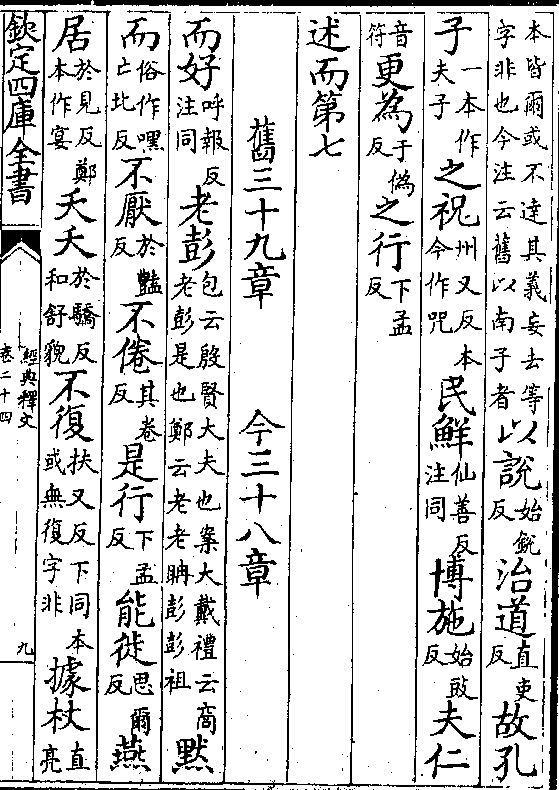 本皆爾或不達其義妄去等字非也今注云舊以南子者以說始銳反治道直吏反故孔
子一本作夫子之祝州又反本今作咒民鮮仙善反注同博施始豉反夫仁
音符更為于偽反之行下孟反
述而第七
舊三十九章 今三十八章
而好呼報反注同老彭包云殷賢大夫也案大戴禮云商老彭是也鄭云老老聃彭彭祖默
而俗作嘿亡北反不厭於豔反不倦其卷反是行下孟反能徙思爾反燕
居於見反鄭本作宴夭夭於驕反和舒貌不復扶又反下同本或無復字非據杖直亮
欽定四庫全書
經典釋文
卷二十四
九